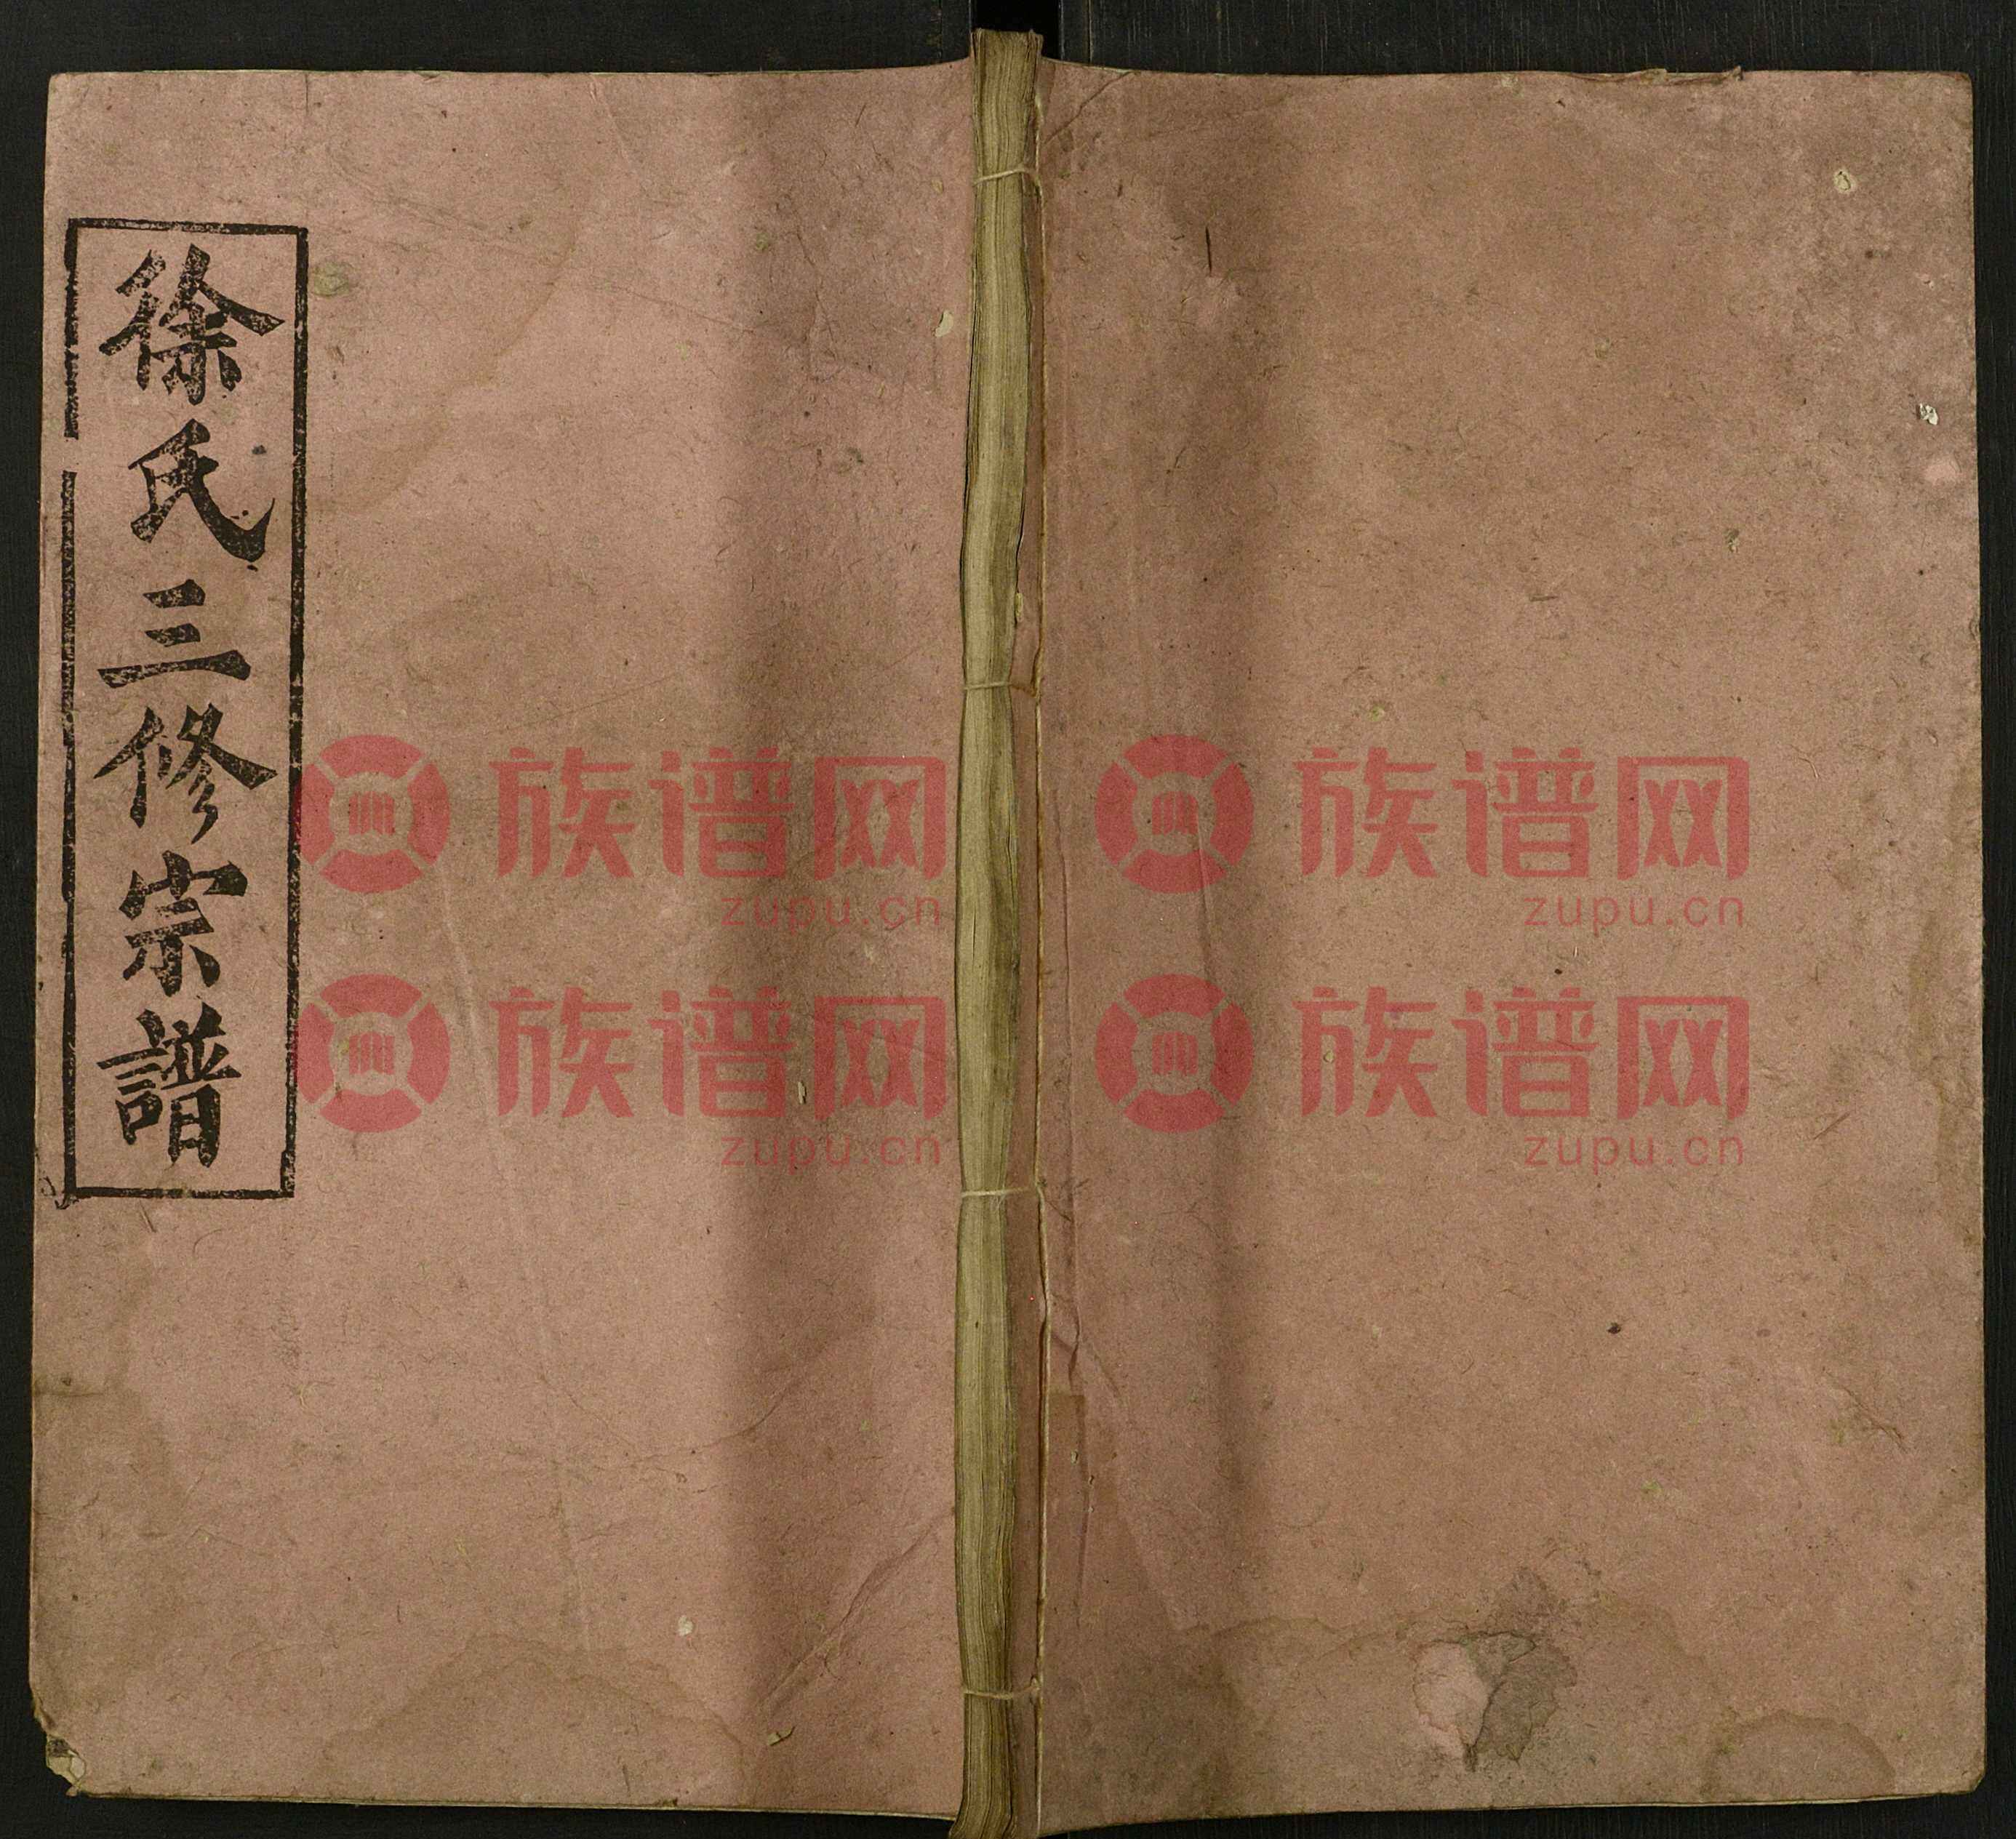 徐氏三修宗譜
族谱网
zupu.cn
族谱网
zupu.cn
族谱网
zupu.cn
族谱网
zupu.cn